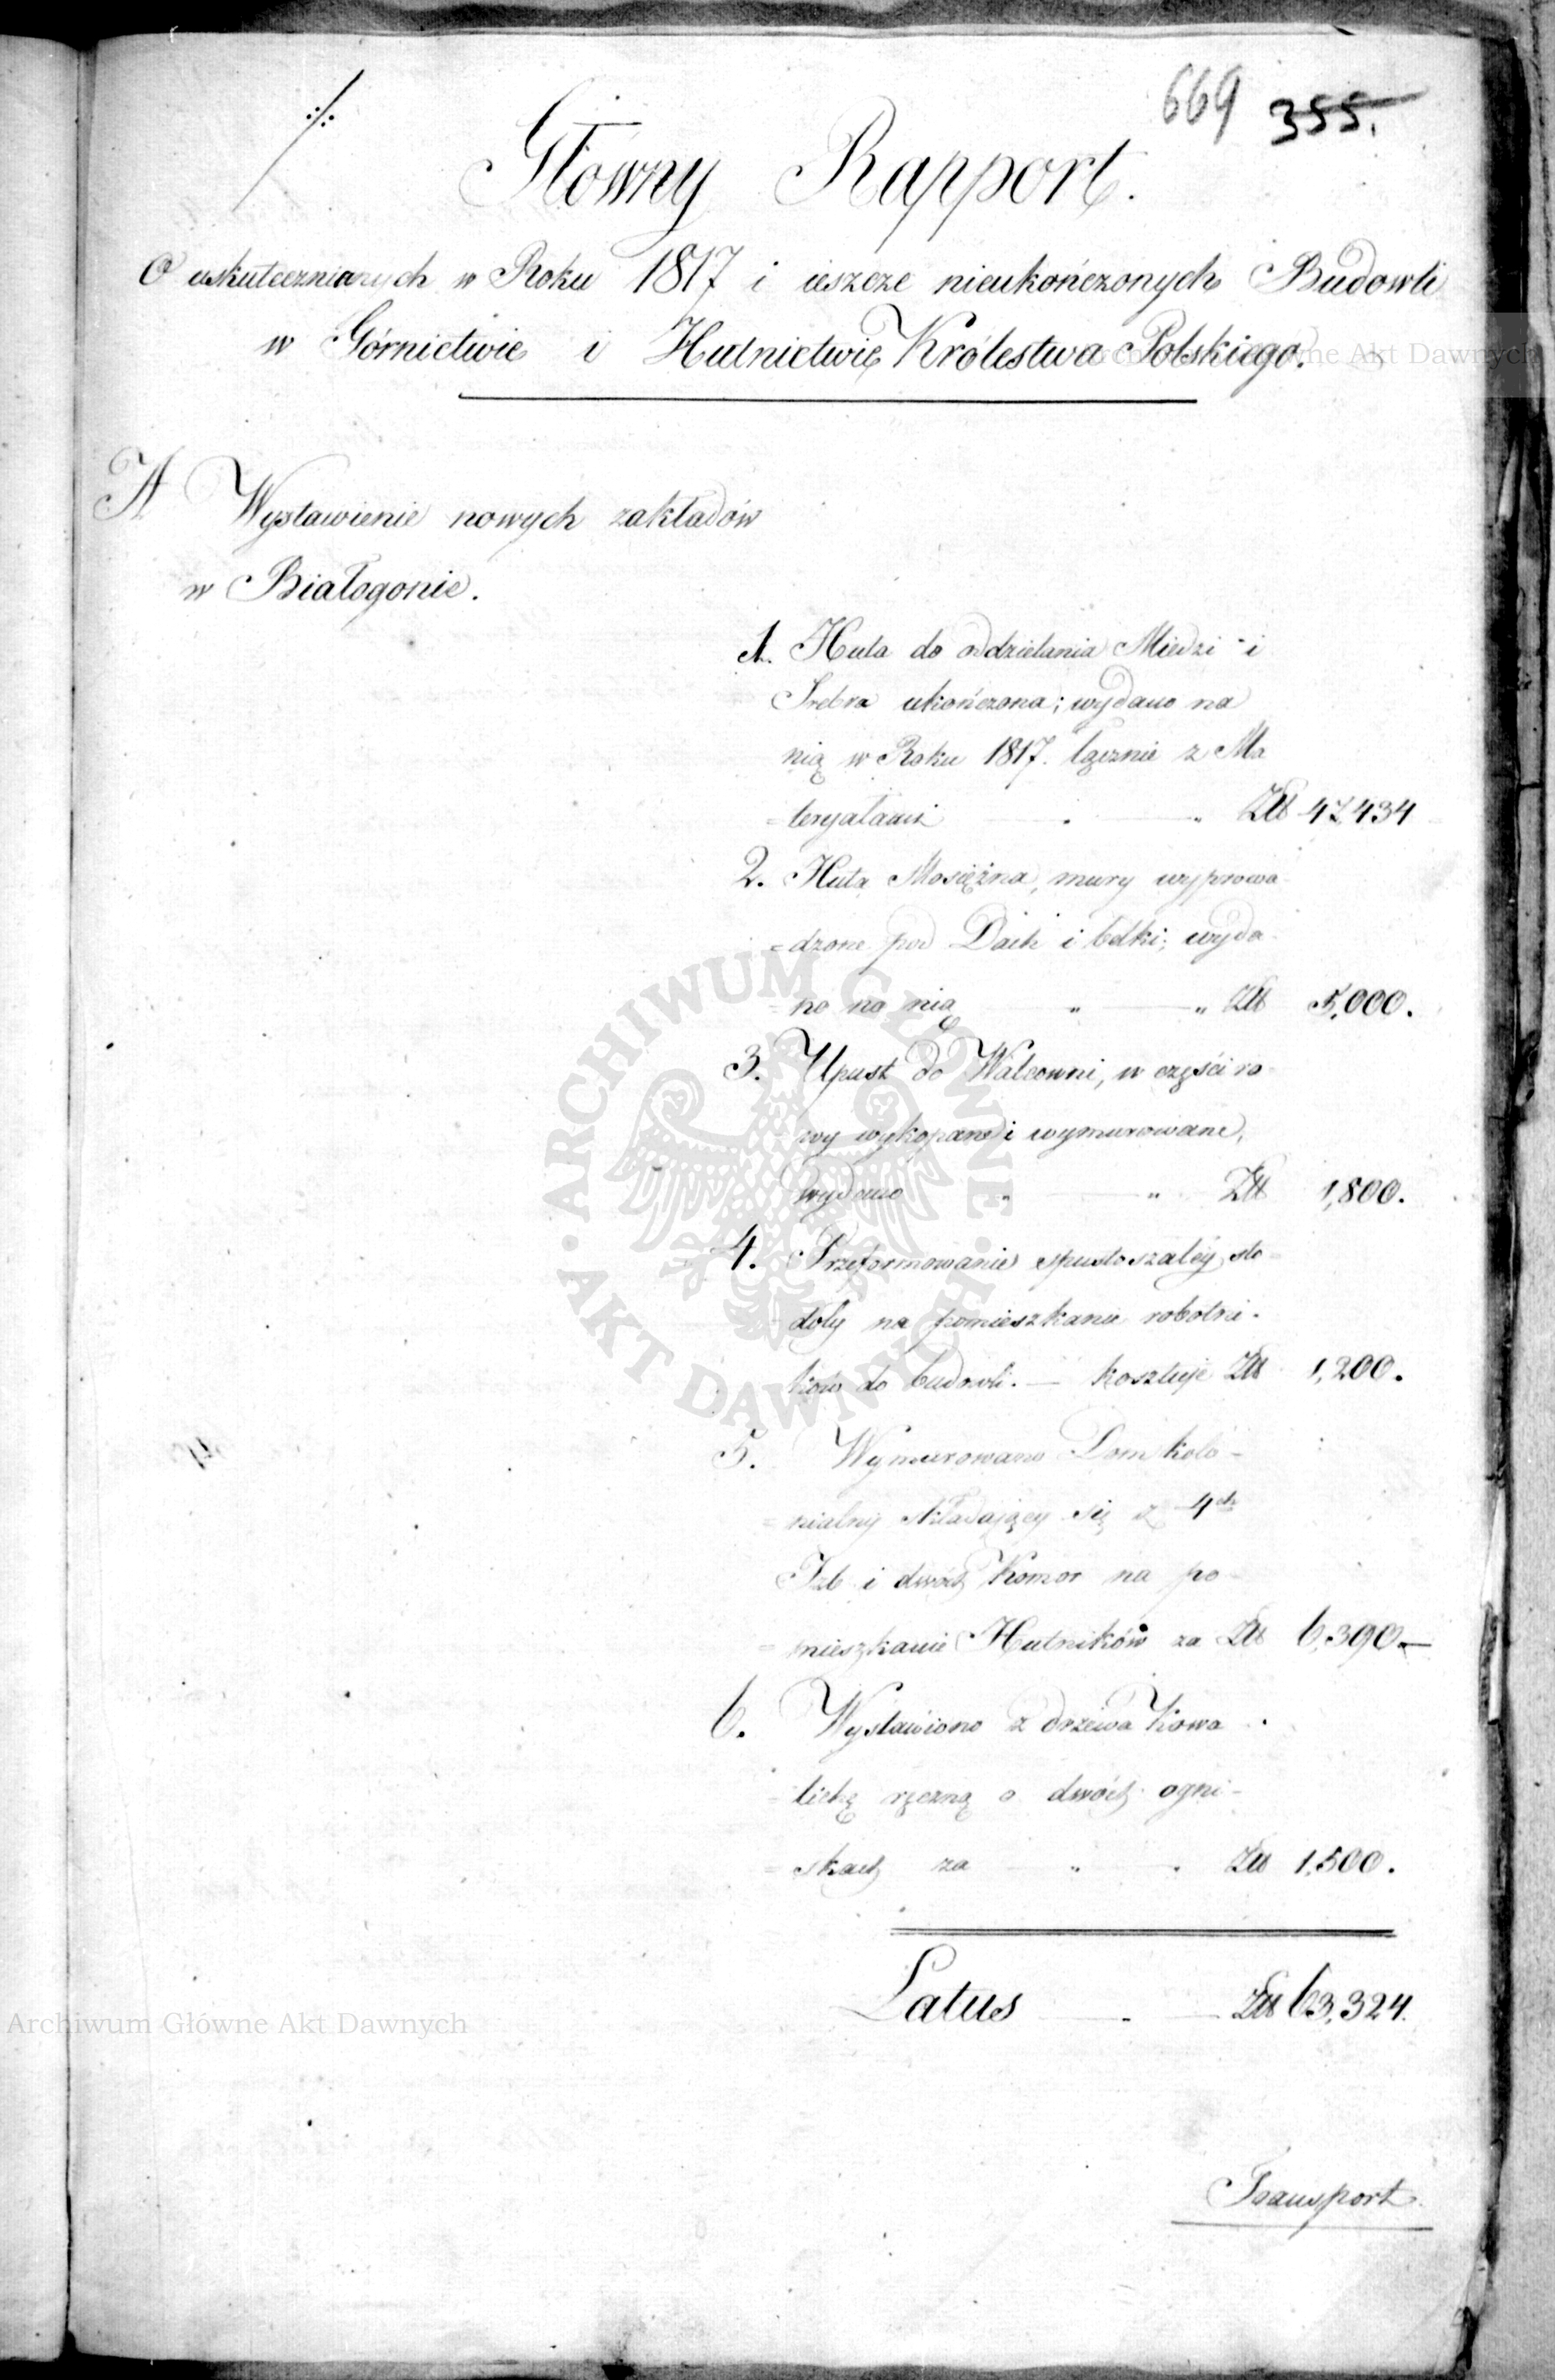 669 355.
Główny Rapport.
O uskutecznianych w Roku 1817 i ieszcze nieukończonych Budowli
w Górnictwie i Hutnictwie Królestwa Polskiego.
A Wystawienie nowych zakładów
w Białogonie.
1. Huta do oddzielania Miedzi i
Srebra ukończona; wydano na
nią w Roku 1817. łącznie z Ma
=teryałami " " Złł 47,434
2. Huta Mosiężna, mury wyprowa-
=dzone pod Dach i belki; wyda-
=no na nią " " Złł 5,000.
3. Upust do Walcowni, w części ro-
wy wykopane i wymurowane,
wydano " " Złł 1,800.
4. Przeformowanie spustoszałéy sto=
=doły na pomieszkanie robotni-
ków do budowli. — kosztuje Złł 1,200.
5. Wymurowano Dom kolo-
=nialny składający się z 4ch
Izb i dwóch Komor na po-
=mieszkanie Hutników za Złł 6,390.—
6. Wystawiono z drzewa Kowa-
=lichę ręczną o dwóch ogni-
=skach za " " Złł 1,500.
Latus Złł 63,324.
Transport.
Archiwum Główne Akt Dawnych
ARCHIWUM GŁÓWNE AKT DAWNYCH
Archiwum Główne Akt Dawnych